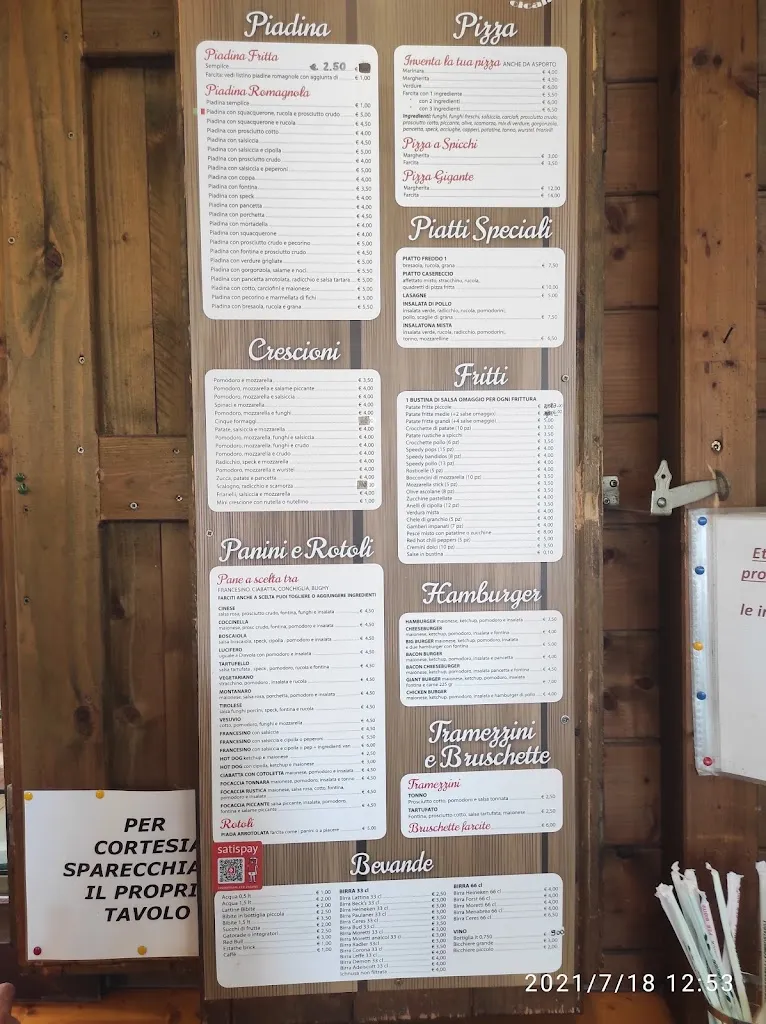 Piadina
Piadina Fritta
Semplice € 2.50
Farcita: vedi listino piadine romagnole con aggiunta di € 1,00
Piadina Romagnola
Piadina semplice € 1,00
Piadina con squacquerone, rucola e prosciutto crudo € 5,00
Piadina con squacquerone e rucola € 4,50
Piadina con prosciutto cotto € 4,00
Piadina con salsiccia € 4,50
Piadina con salsiccia e cipolla € 5,00
Piadina con prosciutto crudo € 4,00
Piadina con salsiccia e peperoni € 5,00
Piadina con coppa € 4,00
Piadina con fontina € 3,50
Piadina con speck € 4,00
Piadina con pancetta € 4,00
Piadina con porchetta € 4,50
Piadina con mortadella € 4,00
Piadina con squacquerone € 4,00
Piadina con prosciutto crudo e pecorino € 5,00
Piadina con fontina e prosciutto crudo € 4,50
Piadina con verdure grigliate € 5,00
Piadina con gorgonzola, salame e noci € 5,50
Piadina con pancetta arrotolata, radicchio e salsa tartara € 5,50
Piadina con cotto, carciofini e maionese € 5,00
Piadina con pecorino e marmellata di fichi € 5,00
Piadina con bresaola, rucola e grana € 5,50
Crescioni
Pomodoro e mozzarella € 3,50
Pomodoro, mozzarella e salame piccante € 4,00
Pomodoro, mozzarella e salsiccia € 4,00
Spinaci e mozzarella € 4,00
Pomodoro, mozzarella e funghi € 4,00
Cinque formaggi
Patate, salsiccia e mozzarella € 4,00
Pomodoro, mozzarella, funghi e salsiccia € 4,00
Pomodoro, mozzarella, funghi e crudo € 4,00
Pomodoro, mozzarella e crudo € 4,00
Radicchio, speck e mozzarella € 4,00
Pomodoro, mozzarella e wurstel € 4,00
Zucca, patate e pancetta € 4,00
Scalogno, radicchio e scamorza
Friarielli, salsiccia e mozzarella € 4,00
Mini crescione con nutella o nutellino € 1,00
Panini e Rotoli
Pane a scelta tra
FRANCESINO, CIABATTA, CONCHIGLIA, RUGHY
FARCITI ANCHE A SCELTA PUOI TOGLIERE O AGGIUNGERE INGREDIENTI
CINESE
salsa rosa, prosciutto crudo, fontina, funghi e insalata € 4,50
COCCINELLA
maionese, prosc crudo, fontina, pomodoro e insalata € 4,50
BOSCAIOLA
salsa boscaiola, speck, cipolla, pomodoro e insalata € 4,50
LUCIFERO
€ 4,50
TARTUFELLO
salsa tartufata, speck, pomodoro, rucola e fontina € 4,50
VEGETARIANO
stracchino, pomodoro, insalata e rucola € 4,50
MONTANARO
maionese, salsa rosa, porchetta, pomodoro e insalata € 4,50
TIROLESE
salsa funghi porcini, speck, fontina e rucola € 4,50
VESUVIO
cotto, pomodoro, funghi e mozzarella € 4,50
FRANCESINO con salsiccia € 4,50
FRANCESINO con salsiccia e cipolla o peperoni € 5,50
FRANCESINO con salsiccia e cipolla o pep + ingredienti vari € 6,00
HOT DOG ketchup e maionese € 2,50
HOT DOG con cipolla, ketchup e maionese € 3,00
CIABATTA CON COTOLETTA maionese, pomodoro e insalata € 4,50
FOCACCIA TONNARA maionese, pomodoro, insalata e tonno € 4,50
FOCACCIA RUSTICA maionese, salsa rosa, cotto, fontina,
pomodoro e insalata € 4,50
FOCACCIA PICCANTE salsa piccante, insalata, pomodoro,
fontina e salame piccante € 4,50
Rotoli
PIADA ARROTOLATA farcita come i panini o a piacere € 5,00
Pizza
Inventa la tua pizza ANCHE DA ASPORTO
Marinara € 4,00
Margherita € 4,50
Verdure € 6,00
Farcita con 1 ingrediente € 5,50
" con 2 ingredienti € 6,00
" con 3 ingredienti € 6,50
Ingredienti: funghi, funghi freschi, salsiccia, carciofi, prosciutto crudo,
prosciutto cotto, piccante, olive, scamorza, mix di verdure, gorgonzola,
pancetta, speck, acciughe, capperi, patatine, tonno, wurstel, friarielli
Pizza a Spicchi
Margherita € 3,00
Farcita € 3,50
Pizza Gigante
Margherita € 12,00
Farcita € 14,00
Piatti Speciali
PIATTO FREDDO 1
bresaola, rucola, grana € 7,50
PIATTO CASERECCIO
affettato misto, stracchino, rucola,
quadretti di pizza fritta € 10,00
LASAGNE € 5,00
INSALATA DI POLLO
insalata verde, radicchio, rucola, pomodorini,
pollo, scaglie di grana € 7,50
INSALATONA MISTA
insalata verde, radicchio, rucola, pomodorini,
tonno, mozzarelline € 6,50
Fritti
1 BUSTINA DI SALSA OMAGGIO PER OGNI FRITTURA
Patate fritte piccole
Patate fritte medie (+2 salse omaggio)
Patate fritte grandi (+4 salse omaggio) € 5,00
Crocchette di patate (10 pz)
Patate rustiche a spicchi
Crocchette pollo (6 pz)
Speedy pops (15 pz)
Speedy bandidos (8 pz)
Speedy pollo (13 pz)
Rusticelle (5 pz)
Bocconcini di mozzarella (10 pz)
Mozzarella stick (5 pz)
Olive ascolane (8 pz)
Zucchine pastellate
Anelli di cipolla (12 pz)
Verdura mista
Chele di granchio (5 pz)
Gamberi impanati (7 pz)
Pesce misto con patatine o zucchine
Red hot chili peppers (5 pz)
Cremini dolci (10 pz)
Salse in bustina € 0,10
Hamburger
HAMBURGER maionese, ketchup, pomodoro e insalata € 3,50
CHEESEBURGER
maionese, ketchup, pomodoro, insalata e fontina € 4,00
BIG BURGER maionese, ketchup, pomodoro, insalata
e due hamburger con fontina € 5,00
BACON BURGER
maionese, ketchup, pomodoro, insalata e pancetta € 4,00
BACON CHEESEBURGER
maionese, ketchup, pomodoro, insalata pancetta e fontina € 4,50
GIANT BURGER maionese, ketchup, pomodoro, insalata
fontina e carne 225 gr € 7,00
CHICKEN BURGER
maionese, ketchup, pomodoro, insalata e hamburger di pollo € 4,00
Tramezzini
e Bruschette
Tramezzini
TONNO
Prosciutto cotto, pomodoro e salsa tonnata € 2,50
TARTUFATO
Fontina, prosciutto cotto, salsa tartufata, maionese € 2,50
Bruschette farcite € 6,00
satispay
Bevande
Acqua 0,5 lt € 1,00
Acqua 1,5 lt € 2,00
Lattine Bibite € 2,00
Bibite in bottiglia piccola € 2,50
Bibite 1,5 lt € 3,50
Succhi di frutta € 2,00
Gatorade o integratori € 2,50
Red Bull € 3,00
Estathe brick € 1,00
Caffè € 1,00
BIRRA 33 cl
Birra Lattina 33 cl € 2,50
Birra Beck's 33 cl € 3,00
Birra Heineken 33 cl € 3,00
Birra Paulaner 33 cl € 3,00
Birra Ceres 33 cl € 3,50
Birra Bud 33 cl € 3,00
Birra Moretti 33 cl € 3,00
Birra Moretti analcol 33 cl € 3,00
Birra Radler 33 cl € 3,00
Birra Corona 33 cl € 4,00
Birra Leffe 33 cl € 4,00
Birra Demon 33 cl € 4,00
Birra Adelscott 33 cl € 4,00
Ichnusa non filtrata € 4,00
BIRRA 66 cl
Birra Heineken 66 cl € 4,00
Birra Forst 66 cl € 4,00
Birra Moretti 66 cl € 4,00
Birra Menabrea 66 cl € 4,00
Birra Ceres 66 cl € 6,50
VINO
Bottiglia lt 0,750 € 9,00
Bicchiere grande € 3,00
Bicchiere piccolo € 2,00
PER
CORTESIA
SPARECCHIA
IL PROPRI
TAVOLO
Et
pro
le in
2021/7/18 12:53